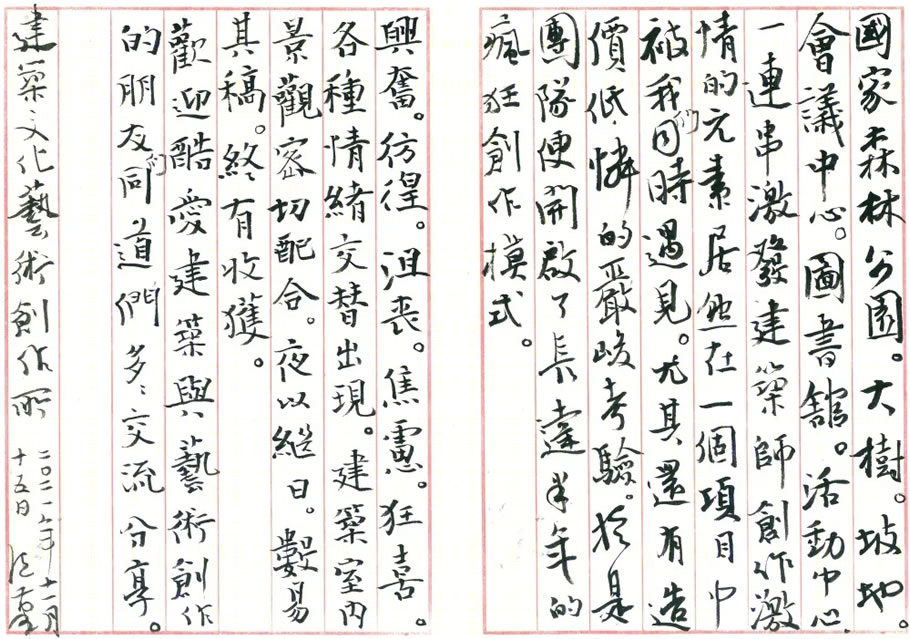 國家森林公園。大樹。坡地。
會議中心。圖書館。活動中心
一連串激發建築師創作激
情的元素居然在一個項目中
被我们同時遇見。尤其還有造
價低憐的嚴峻考驗。於是
團隊便開啟了長達半年的
瘋狂創作模式。
興奮。彷徨。沮喪。焦慮。狂喜。
各種情緒交替出現。建築室內
景觀密切配合。夜以繼日。數易
其稿。終有收獲。
歡迎酷愛建築與藝術創作
的朋友们同道們多々交流分享。
建築文化藝術創作所
二〇二一年十一月
十五日